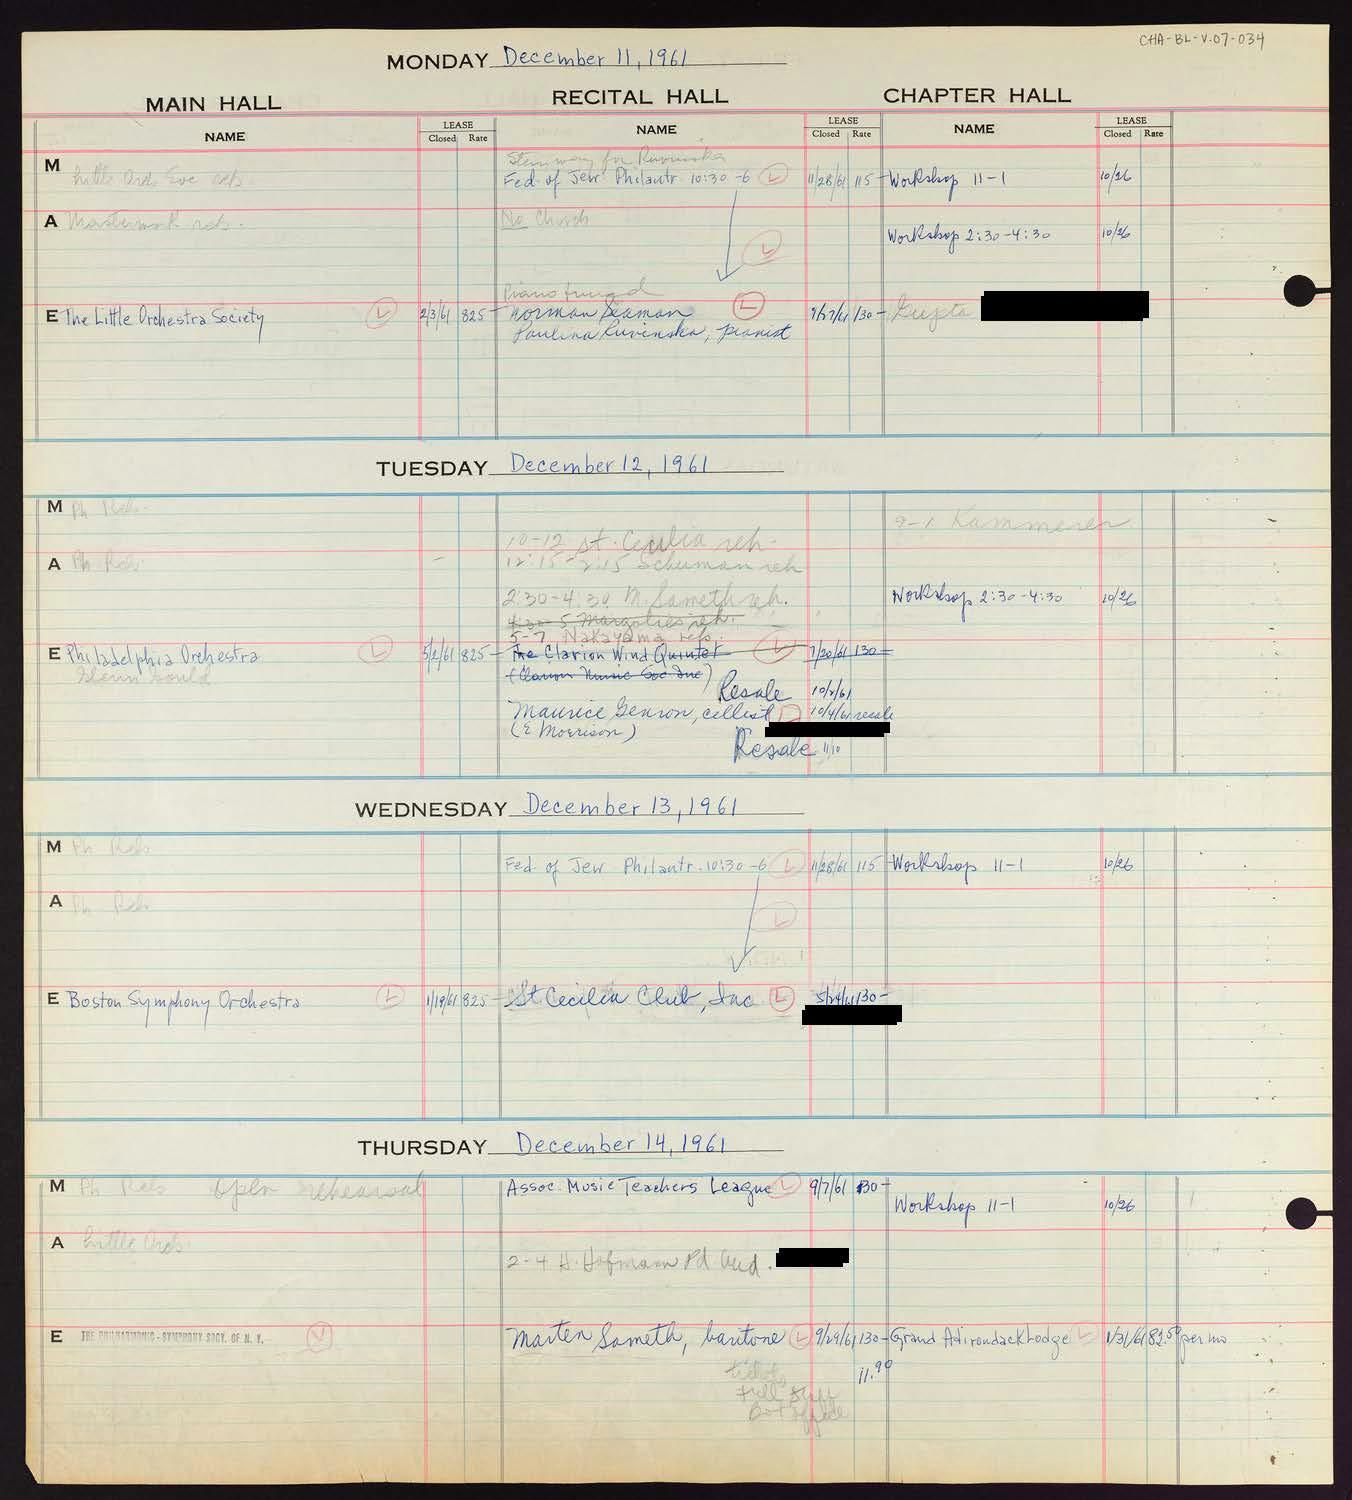 CHA-BL-V.07-034
MONDAY December 11, 1961
MAIN HALL
RECITAL HALL
CHAPTER HALL
NAME
LEASE
Closed Rate
NAME
LEASE
Closed Rate
NAME
LEASE
Closed Rate
M
Little Orch Soc reh.
Steinway for Ruvinska
Fed. of Jew. Philantr. 10:30-6 L 11/28/61 115-
Workshop 11-1 10/26
A
Masterwork reh.
No Church
L
Workshop 2:30-4:30 10/26
Piano tuned
E The Little Orchestra Society L 2/3/61 825-
Norman Seaman L 9/27/61 130-
Gupta
Paulina Ruvinska, pianist
TUESDAY December 12, 1961
M Ph Reh.
9-1 Kammerer
10-12 St. Cecilia reh.
A Ph Reh.
12:15-2:15 Schuman reh
2:30-4:30 M. Sameth reh.
Workshop 2:30-4:30 10/26
4:30-5 Margolies reh.
5-7 Nakayama reh.
E Philadelphia Orchestra L 5/2/61 825-
Glenn Gould
The Clarion Wind Quintet L 7/20/61 130-
(Clarion Music Soc Inc)
Resale 10/2/61
Maurice Genron, cellist L 10/4/61 resale
(E Morrison)
Resale 11/10
WEDNESDAY December 13, 1961
M Ph Reh
Fed. of Jew. Philantr. 10:30-6 L 11/28/61 115
Workshop 11-1 10/26
A Ph Reh
L
E Boston Symphony Orchestra L 1/19/61 825-
St Cecilia Club, Inc L 5/24/61 130-
THURSDAY December 14, 1961
M Ph Reh Open rehearsal
Assoc. Music Teachers League L 9/7/61 130-
Workshop 11-1 10/26
A Little Orch.
2-4 H. Hofmann Pd Aud.
E THE PHILHARMONIC-SYMPHONY SOCY. OF N. Y.
Marten Sameth, baritone L 9/29/61 130-
Grand Adirondack Lodge L 1/31/61 82.50 per mo
11.90
tickets
Full Staff
Box office